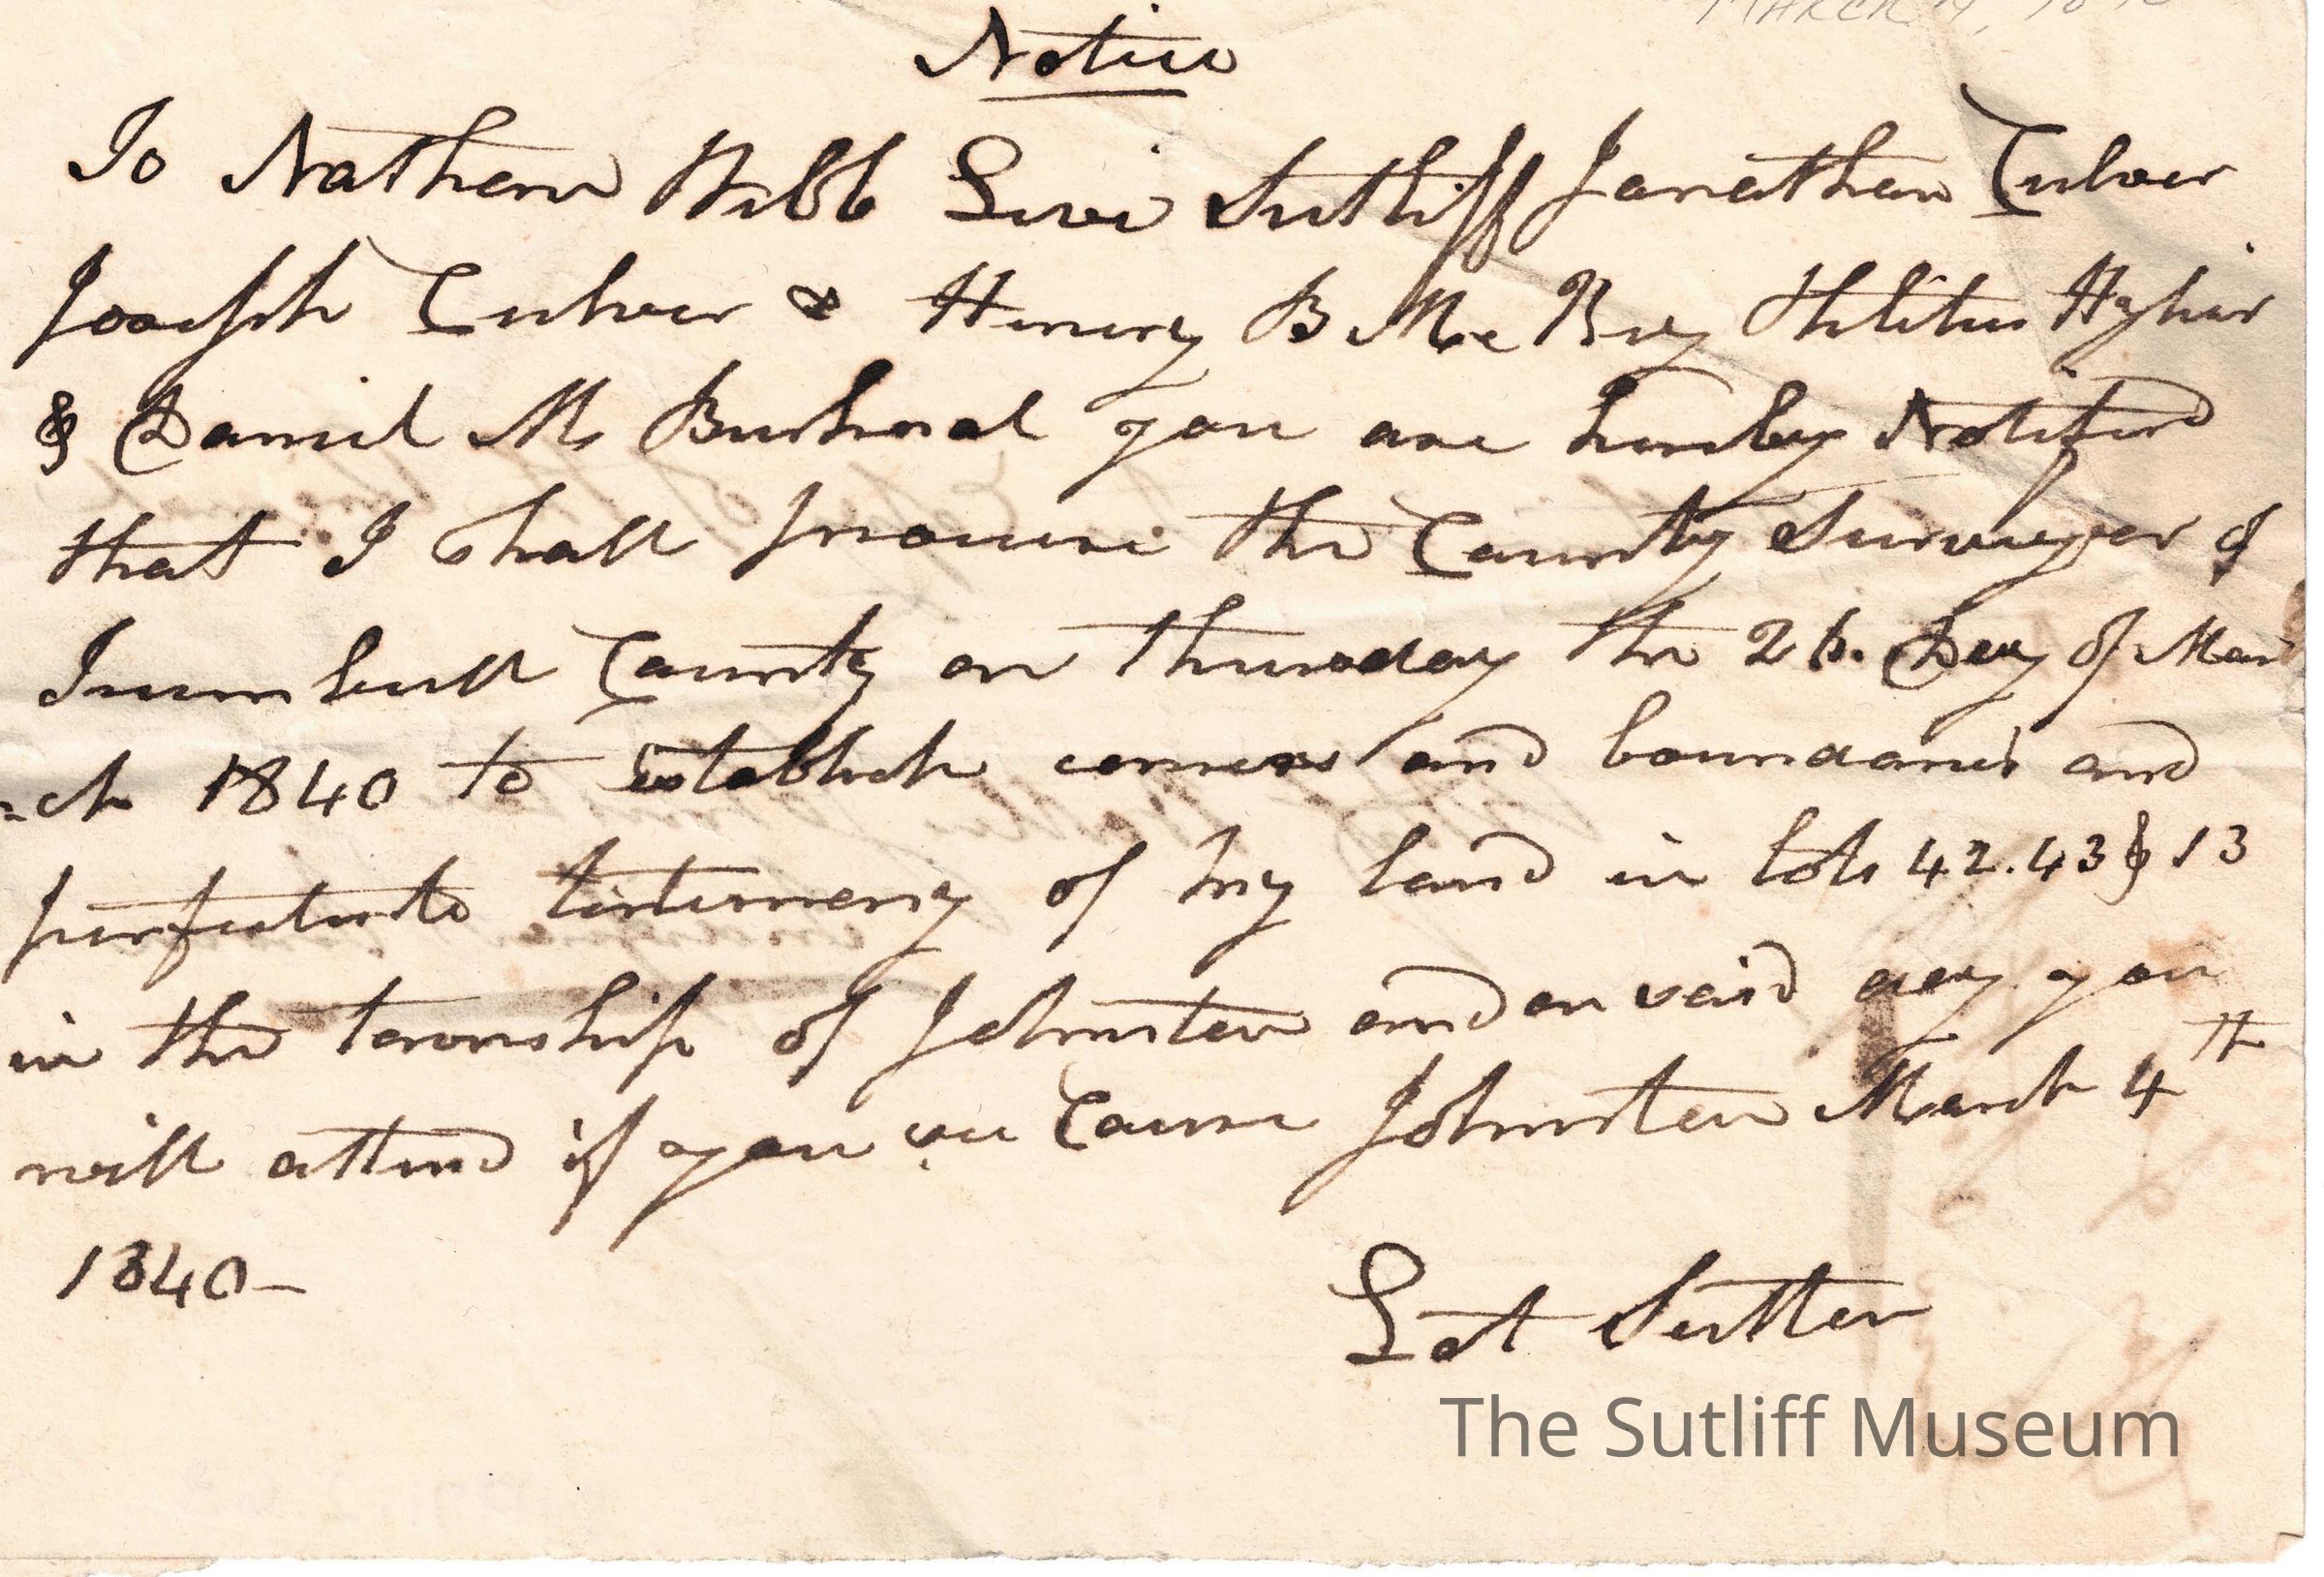 MARCH 4, 1840
Notice
To Nathan Webb Levi Sutliff Jonathan Culver
Joseph Culver & Henry B Mc
& Daniel M Bushnal you are hereby Notified
that I shall procure the County Surveyor of
Trumbull County on Thursday the 26. Day of Mar
=ch 1840 to Establish corners and boundaries and
testimony of my land in lots 42.43 & 13
in the township of Johnston and on said day you
will attend if you see Cause Johnston March 4th
1840–
Lot Sutten
The Sutliff Museum